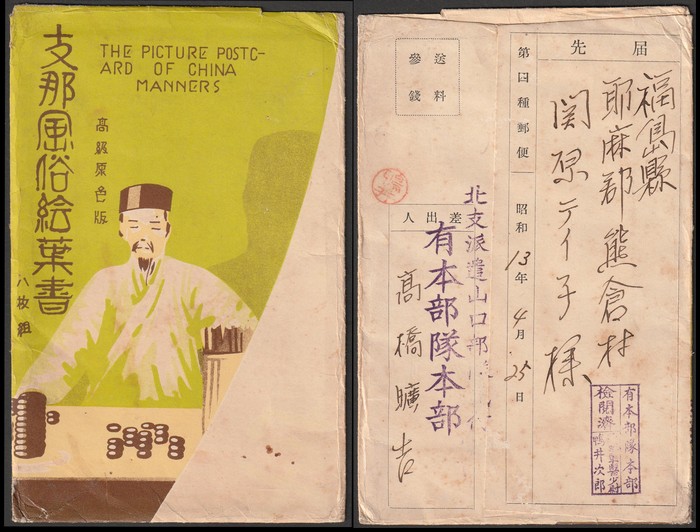 支那風俗絵葉書
THE PICTURE POSTC-
ARD OF CHINA
MANNERS
高級原色版
八枚組
届先
福島縣
耶麻郡熊倉村
関原テイ子様
第四種郵便
昭和13年4月25日
送料
参銭
差出人
北支派遣山口部隊
有本部隊本部
高橋曠吉
有本部隊本部
検閲済
鴨井次郎